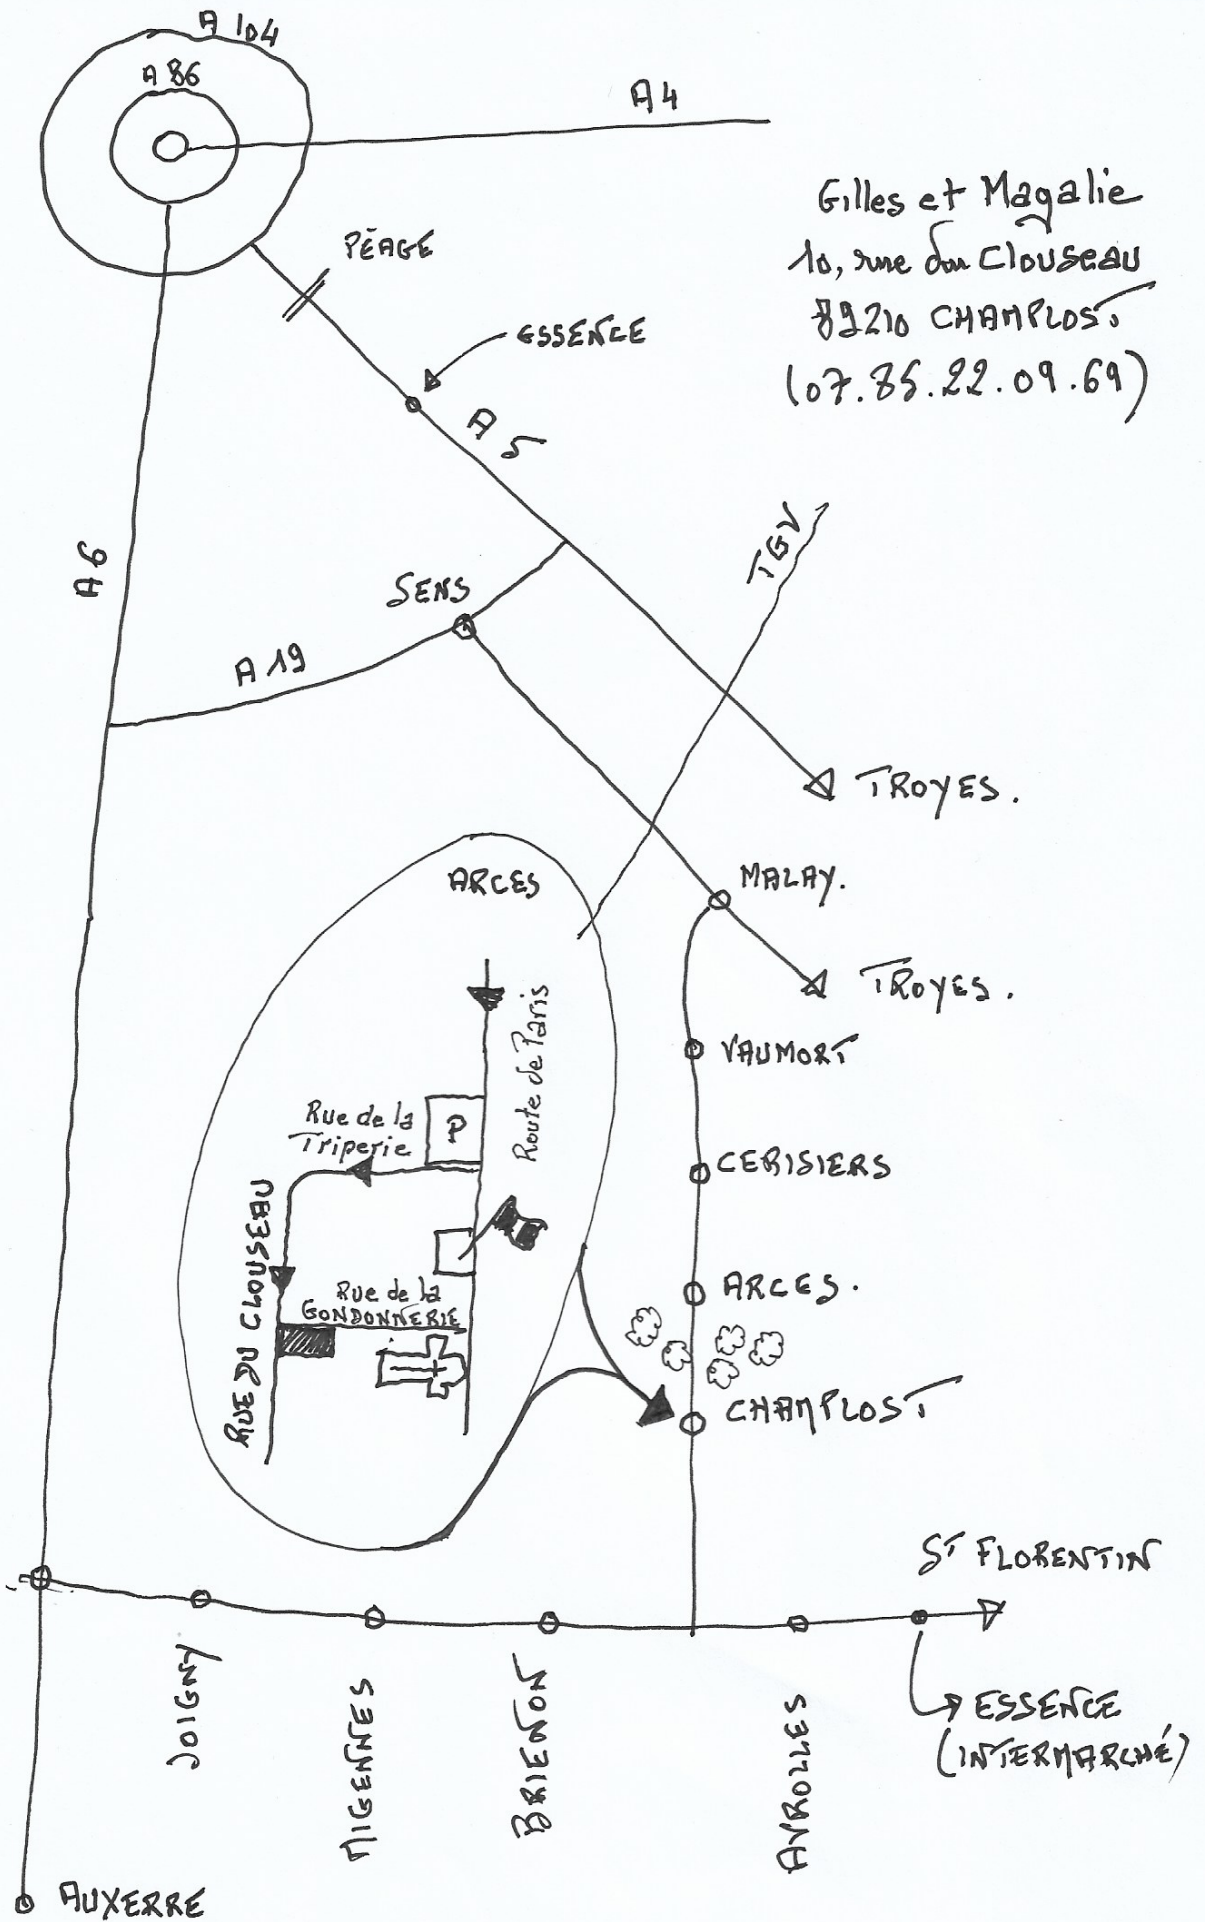 A 104
A 86
A4
Gilles et Magalie
10, rue du Clouseau
89210 CHAMPLOST
(07.85.22.09.69)
PÉAGE
ESSENCE
A 5
TGV
A6
SENS
A 19
TROYES.
MALAY.
TROYES.
ARCES
Route de Paris
VAUMORT
Rue de la
Triperie
P
CERISIERS
RUE DU CLOUSEAU
Rue de la
GONDONNERIE
ARCES.
CHAMPLOST
ST FLORENTIN
JOIGNY
MIGENNES
BRIENON
AVROLLES
ESSENCE
(INTERMARCHÉ)
AUXERRE